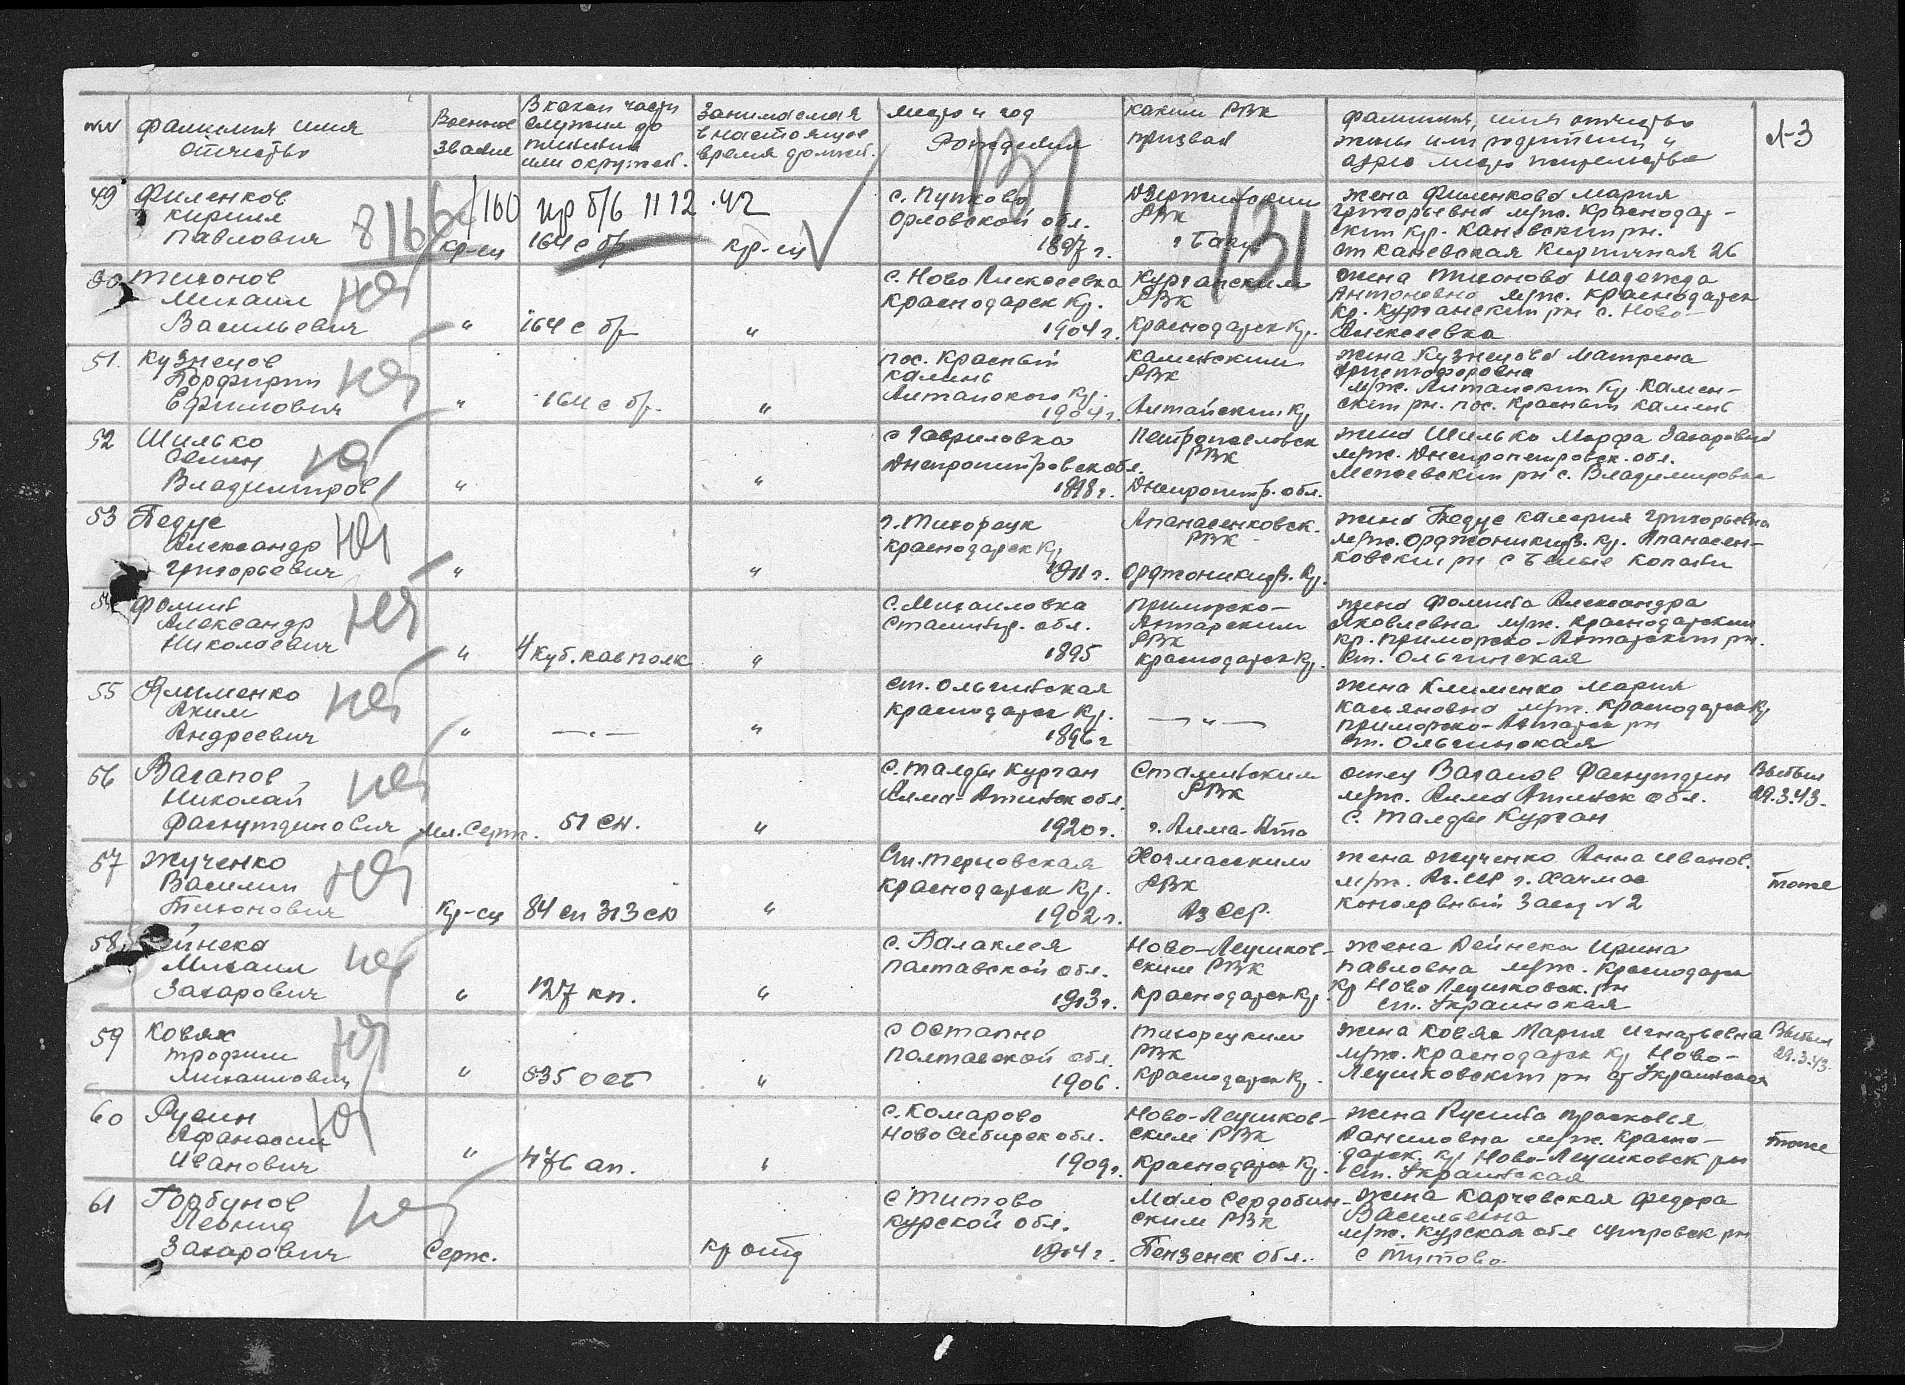 №№
Фамилия имя
отчество
Военное
звание
В какой части
служил до
пленения
или окружен.
Занимаемая
в настоящее
время должн.
Место и год
Рождения
Каким РВК
призван
Фамилия, имя отчество
жены или родителей и
адрес место жительство
Л-3
131
131
49 Филенков
Кирилл
Павлович
8166
160 пр б/б 11 12 42
кр-ец
164 с бр
кр-ец
с. Путково
Орловской обл.
1897 г.
РВК
жена Филенкова Мария
Григорьевна м/ж. Краснодар-
ский кр. Каневский рн.
ст Каневская Кирпичная 26
50 Тихонов
Михаил
Васильевич
нет
"
164 с бр
"
с. Ново Алексеевка
Краснодарск Кр.
1904 г.
Курганским
РВК
Краснодарск Кр.
жена Тихонова Надежда
Антоновна м/ж. Краснодарск
Кр. Курганский рн с. Ново-
Алексеевка
51. Кузнецов
Порфирий
Ефимович
нет
"
164 с бр.
"
пос. Красный
камень
Алтайского Кр.
1904 г.
Каменским
РВК
Алтайский Кр
жена Кузнецова Матрена
Христофоровна
м/ж. Алтайский Кр. Камен-
ский рн. пос. Красный камень
52 Шилько
Семен
Владимиров
нет
"
"
с Гавриловка
Днепропетровск обл.
1898 г.
Петропавловск
РВК
Днепропетр. обл.
жена Шилько Марфа Захаровна
м/ж. Днепропетровск. обл.
Межевский рн с. Владимировка
53 Педус
Александр
Григорьевич
нет
"
"
г. Тихорецк
Краснодарск Кр
1911 г.
Апанасенковск.
РВК
Орджоникидз. Кр.
жена Педус Валерия Григорьевна
м/ж. Орджоникидз. кр. Апанасен-
ковский рн с Белые Копани
54 Фомин
Александр
Николаевич
нет
"
4 куб. кав полк
"
с. Михайловка
Сталингр. обл.
1895
Приморско-
Ахтарским
РВК
Краснодарск Кр.
жена Фомина Александра
Яковлевна м/ж. Краснодарский
кр. Приморско-Ахтарский рн.
ст. Ольгинская
55 Клименко
Аким
Андреевич
нет
"
— " —
"
ст. Ольгинская
Краснодарск Кр.
1896 г
— " —
жена Клименко Мария
Касьяновна м/ж. Краснодарск Кр
Приморско-Ахтарск рн
ст. Ольгинская
56 Вагапов
Николай
Фаснутдинович
нет
мл. серж.
51 сп.
"
с. Талды Курган
Алма-Атинск обл.
1920 г.
Сталинским
РВК
г. Алма-Ата
отец Вагапов Фаснутдин
м/ж. Алма Атинск обл.
с. Талды Курган
Выбыл
29.3.43.
57 Жученко
Василий
Тихонович
нет
кр-ец
84 сп 313 сд
"
ст. Терновская
Краснодарск Кр.
1902 г.
Хачмасским
РВК
Аз ССР.
жена Жученко Анна Иванов.
м/ж. Аз. ССР г. Хачмас
консервный завод №2
тоже
58 Дейнека
Михаил
Захарович
нет
"
127 кп.
"
с. Балаклея
Полтавской обл.
1913 г.
Ново-Леушков-
ским РВК
Краснодарск Кр.
жена Дейнека Ирина
Павловна м/ж. Краснодарск
Кр Ново Леушковск. рн
ст. Украинская
59 Ковяк
Трофим
Михайлович
нет
"
835 обс
"
с Остапно
Полтавской обл.
1906.
Тихорецким
РВК
Краснодарск Кр.
жена Ковяк Мария Игнатьевна
м/ж. Краснодарск Кр Ново-
Леушковский рн ст Украинская
Выбыл
29.3.43.
60 Русин
Афанасий
Иванович
нет
"
476 ап.
"
с. Комарово
Ново Сибирск обл.
1909 г.
Ново-Леушков-
ским РВК
Краснодарск Кр.
жена Русина Прасковья
Даниловна м/ж. Красно-
дарск. кр Ново-Леушковск рн
ст. Украинская
тоже
61 Горбунов
Леонид
Захарович
нет
Серж.
кр отд
с Титово
Курской обл.
1904 г.
Мало Сердобин-
ским РВК
Пензенск обл.
жена Карчевская Федора
Васильевна
м/ж. Курская обл Щигровск рн
с Титово